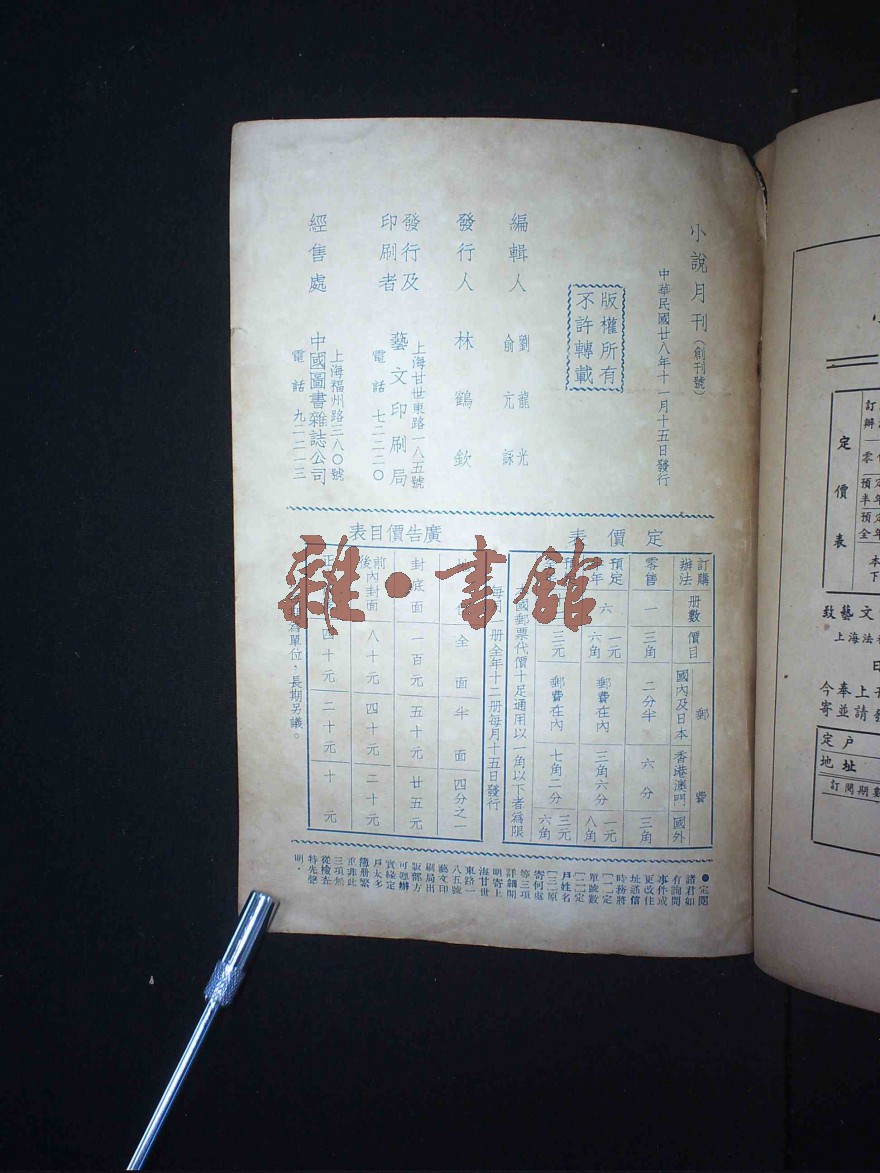 小說月刊（創刊號）
中華民國廿八年十一月十五日發行
版權所有
不許轉載
編輯人 劉龍光
俞亢詠
發行人 林鶴欽
發行及
印刷者
上海甘世東路一八五號
藝文印刷局
電話 七二二二〇
經售處
上海福州路三八〇號
中國圖書雜誌公司
電話 九二二一三
定價表
訂購辦法 冊數 價目 郵費
國內及日本 香港澳門 國外
零售 一 三角 二分半 六分 三角
預定 年 六 一元六角 郵費在內 三角六分 一元八角
三元 郵費在內 七角二分 三元六角
國郵票代價十足通用以一角以下者爲限
每 一冊全年十二冊每月十五日發行
廣告價目表
全面 半面 四分之一
封底面 一百元 五十元 廿五元
前後內封面 八十元 四十元 二十元
正 四十元 二十元 十元
爲單位，長期另議。
●定閱
諸君如
有詢問
事件或
更改住
址通信
時務將
〔一〕定
單號數
〔二〕定
戶姓名
〔三〕原
寄何處
等三項
詳細開
明寄上
海甘世
東路一
八五號
藝文印
刷局出
版部方
可照辦
實緣定
戶太多
簿冊繁
重非此
三項無
從檢查
特先聲
明。
雜·書館
定價表
訂
辦
零
預定
半年
預定
全年
本
下
致藝文
上海法
今奉上
寄並請
定戶
地址
訂閱期數